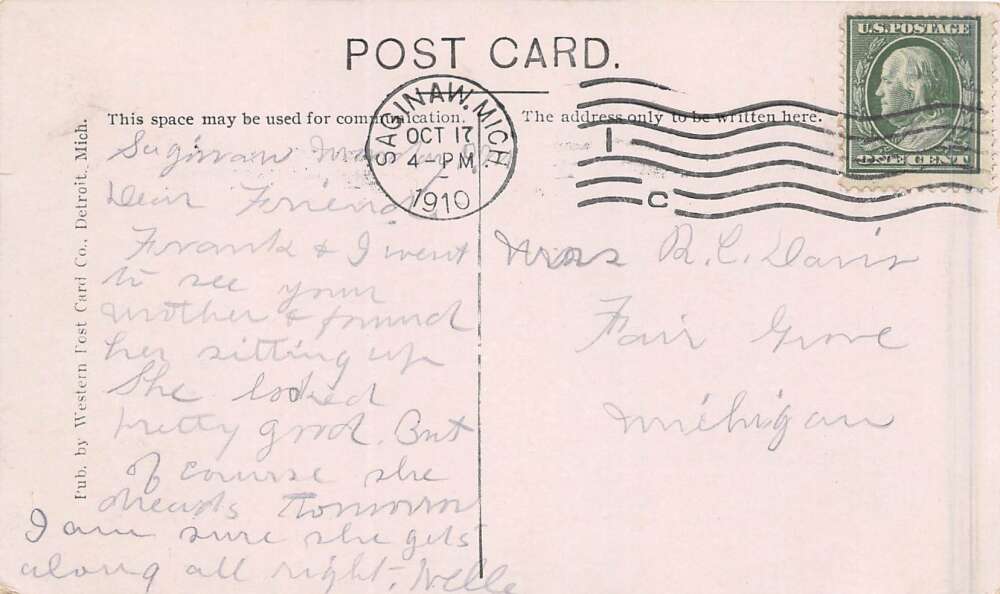 POST CARD.
U.S. POSTAGE
ONE CENT
SAGINAW, MICH.
OCT 17
4-PM
1910
1
C
This space may be used for communication.
The address only to be written here.
Pub. by Western Post Card Co., Detroit, Mich.
Saginaw Monday
Dear Friend
Frank & I went
to see your
mother & found
her sitting up
She looked
pretty good. But
of course she
dreads tomorrow
I am sure she gets
along all right. Nelle
Mrs R. C. Davis
Fair Grove
Michigan